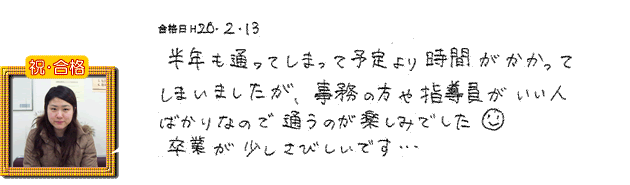 合格日 H26・2・13
祝・合格
半年も通ってしまって予定より時間がかかって
しまいましたが、事務の方や指導員がいい人
ばかりなので通うのが楽しみでした
卒業が少しさびしいです…